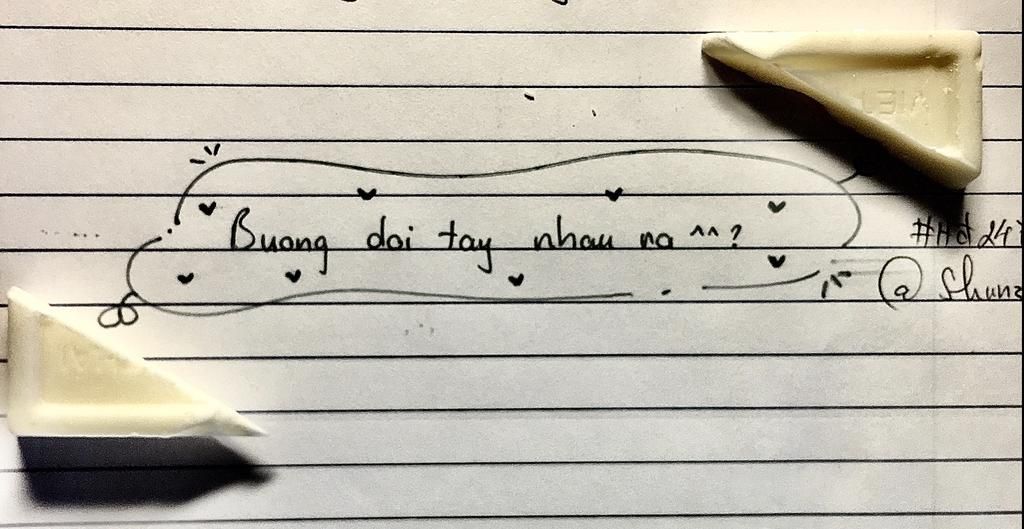 Buong doi tay nhau ra ^^?
#Hd247
@ Shunz